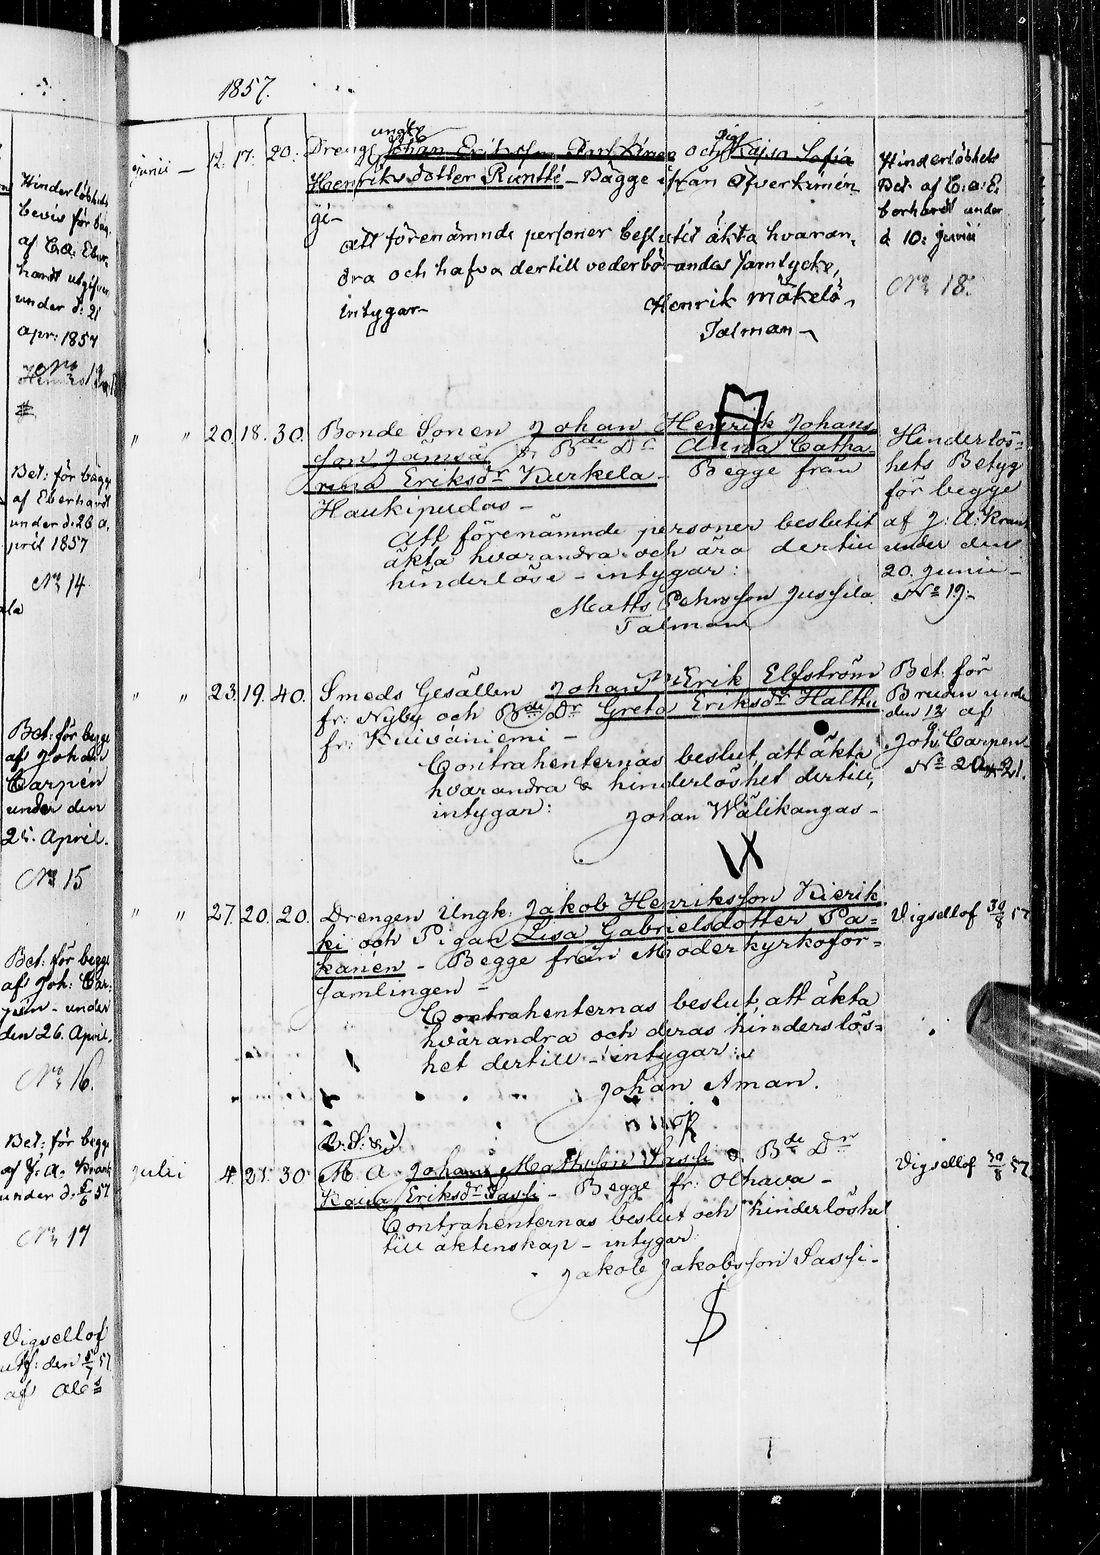 1857.
Hinderlöshets
bevis för
af
utgifven
under d: 21
apr: 1857
Bet: för begge
af Eberhardt
under d. 26 a,
pril 1857
No 14
Bet: för begge
af Johan
Carpén
under den
25. April.
No 15
Bet: för begge
af Joh: Car,
under
den 26. April.
No 16.
Bet: för begge
af J. A. Krank
under d. 57
No 17
Vigsellof
utf: den 57
af
Junii — 12. 17. 20. Dreng ungk Johan Eriksson och Pig Kajsa Sofia
Henriksdotter Runtti — Bägge ifrån Öfverkiimin,
gi—
Att förenämnde personer beslutit äkta hvaran,
dra och hafva dertill vederbörandes samtycke,
intygar—
Henrik Mäkelä,
Talman—
Hinderlöshets
Bet. af C: a: E,
berhardt under
d 10: Junii
No 18.
" " 20. 18. 30. Bonde Sonen Johan Henrik Johans
son Jämsä & Bde Dr Anna Catha
rina Eriksdr Kurkela. Begge från
Haukipudas —
Att förenämnde personer beslutit
äkta hvarandra och äro dertill
hinderlöse — intygar:
Matts Pehrsson Jussila
Talman
Hinderlös=
hets Betyg
för begge
af J. A. Krank
under den
20. Junii —
No 19.
" " 23. 19. 40. Smeds Gesällen Johan Erik Elfström
fr: Nyby och Bde Dr Greta Eriksdr Halttu
fr: Kuivaniemi —
Contrahenternas beslut, att äkta
hvarandra & hinderlöshet dertill,
intygar:
Johan Wälikangas —
Bet. för
Bruden unde
den 12 af
Joh: Carpen
No 20 21.
" " 27. 20. 20. Drengen Ungk: Jakob Henriksson Kierik
ki och Pigan Lisa Gabrielsdotter Pa=
kanen — Begge från Moderkyrkoför=
samlingen —
Contrahenternas beslut, att äkta
hvarandra och deras hinderslös=
het dertill — intygar:
Johan Aman.
Vigsellof 30/8 57
Julii 4. 21. 30 M. A. Johan Mathsson Sassi & Bde Dr
Kaisa Eriksdr Sassi — Begge fr: Olhava —
Contrahenternas beslut och hinderlöshet
till äktenskap — intygar
Jakob Jakobsson Sassi —
Vigsellof 30/8 57